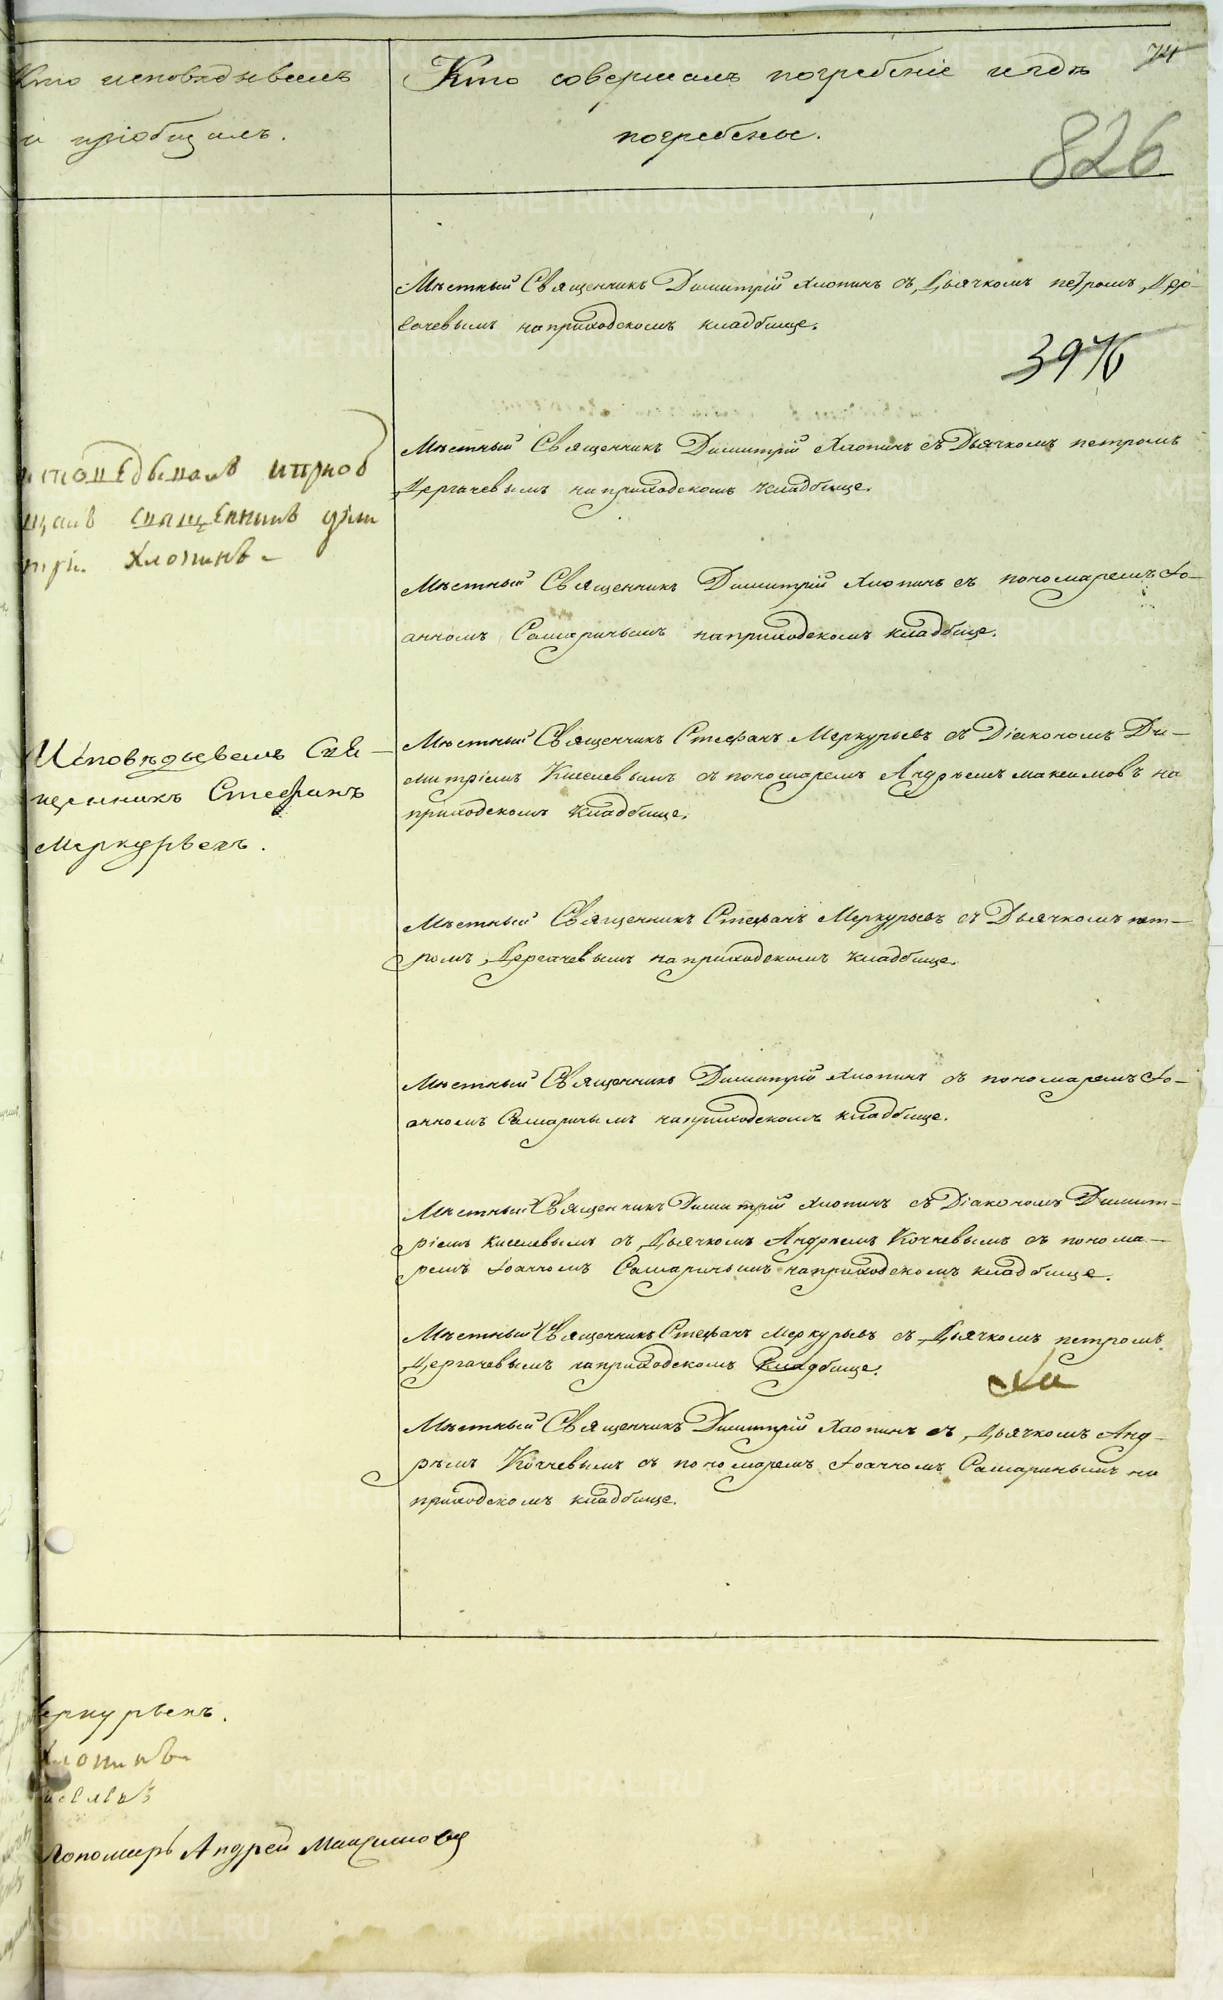 Кто исповѣдывалъ
и пріобщилъ.
Кто совершалъ погребеніе и гдѣ
погребены.
74
826
Мѣстный Священникъ Димитрій Хлопинъ съ Дьячкомъ петромъ Дер-
гачевымъ на приходскомъ кладбище.
3976
исповедывалъ и приоб
щалъ священникъ дими
трій Хлопинъ
Мѣстный Священникъ Димитрій Хлопинъ съ Дьячкомъ петромъ
Дергачевымъ на приходскомъ кладбище.
Мѣстный Священникъ Димитрій Хлопинъ съ пономаремъ Іо-
анномъ Самаринымъ на приходскомъ кладбище.
Исповѣдывалъ Свя-
щенникъ Стефанъ
Меркурьевъ.
Мѣстный Священникъ Стефанъ Меркурьевъ съ Діакономъ Ди-
митріемъ Киселевымъ съ пономаремъ Андреемъ максимовъ на
приходскомъ кладбище.
Мѣстный Священникъ Стефанъ Меркурьевъ съ Дьячкомъ пет-
ромъ Дергачевымъ на приходскомъ кладбище.
Мѣстный Священникъ Димитрій Хлопинъ съ пономаремъ Іо-
анномъ Самаринымъ на приходскомъ кладбище.
Мѣстный Священникъ Димитрій Хлопинъ съ Діакономъ Димит-
ріемъ Киселевымъ съ Дьячкомъ Андреемъ Кочневымъ съ понома-
ремъ Іоанномъ Самаринымъ на приходскомъ кладбище.
Мѣстный Священникъ Стефанъ Меркурьевъ съ Дьячкомъ петромъ
Дергачевымъ на приходскомъ кладбище.
Мѣстный Священникъ Димитрій Хлопинъ съ Дьячкомъ Анд-
реемъ Кочневымъ съ пономаремъ Іоанномъ Самаринымъ на
приходскомъ кладбище.
еркурьевъ.
Хлопинъ
иселевъ
Пономарь Андрей Максимовъ
METRIKI.GASO-URAL.RU